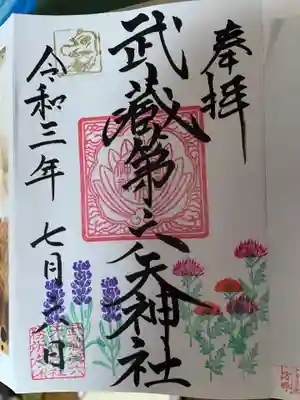 奉拝
武蔵第六天神社
令和三年 七月六日